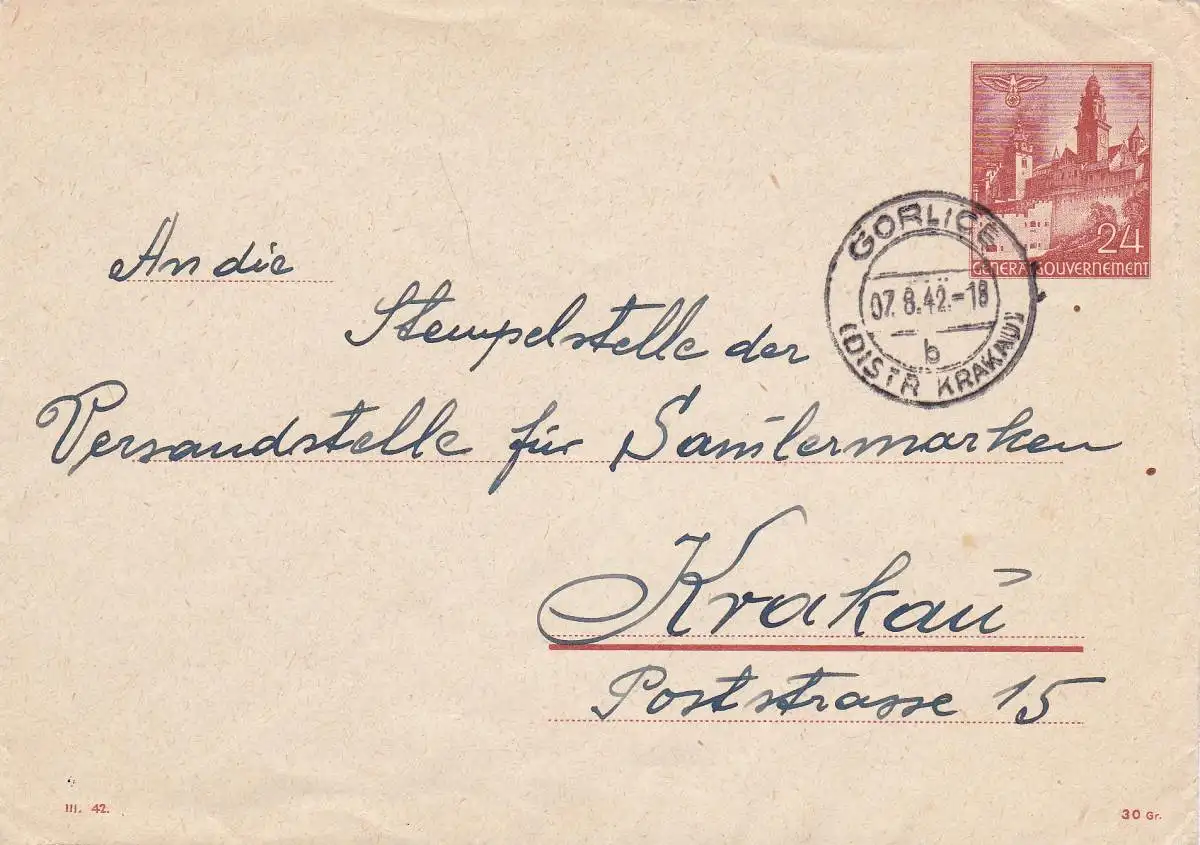 24
GENERALGOUVERNEMENT
GORLICE
07.8.42.-18
b
(DISTR KRAKAU)
An die
Stempelstelle der
Versandstelle für Samlermarken
Krakau
Poststrasse 15
III. 42.
30 Gr.